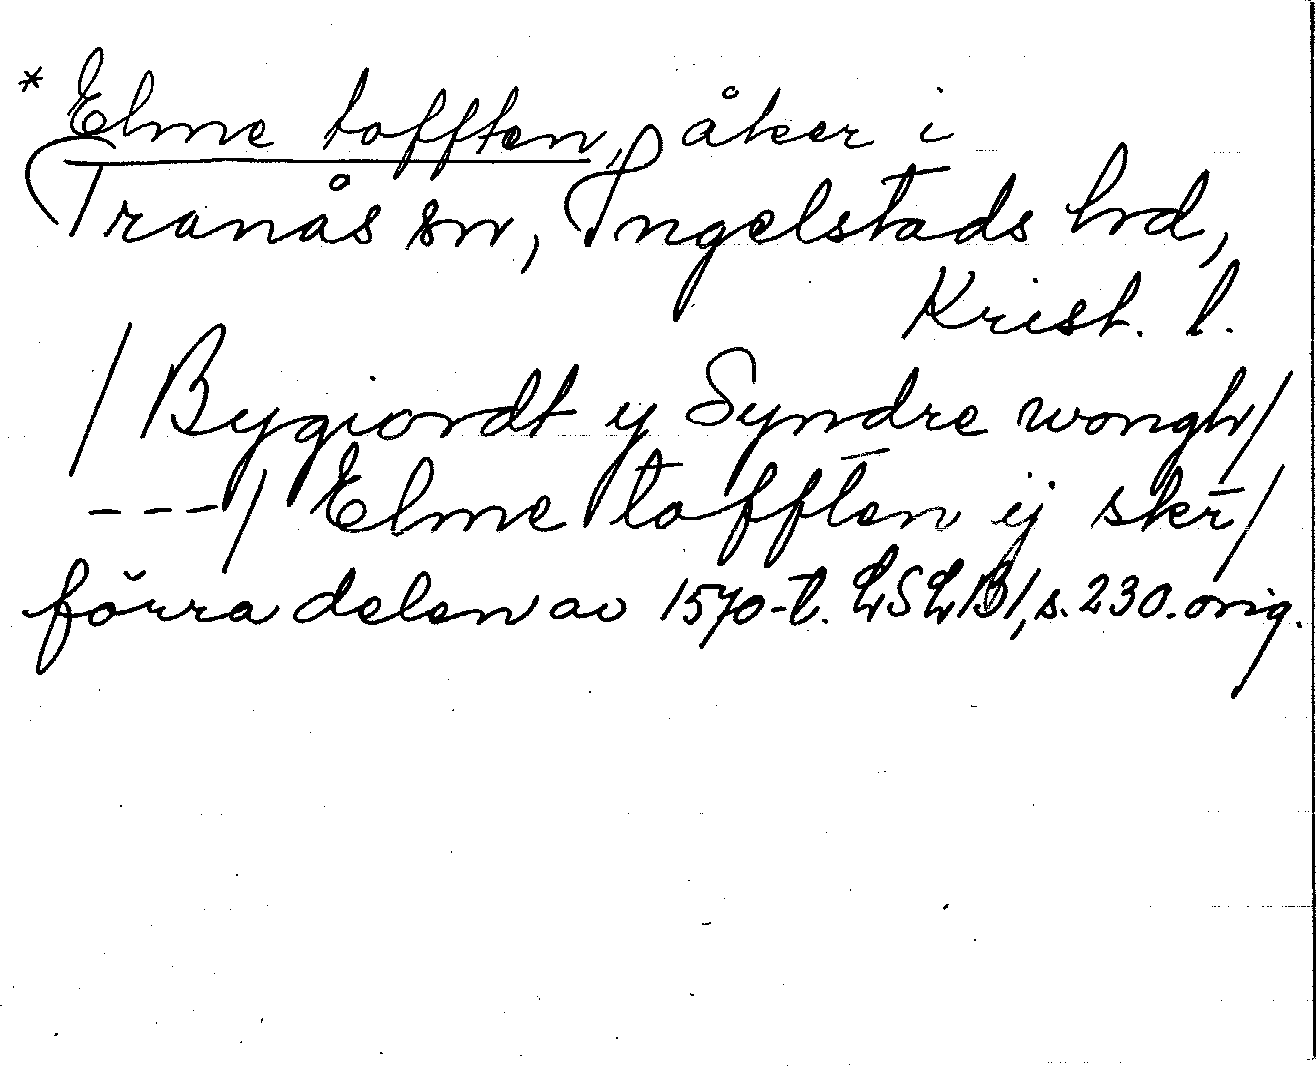 * Elme tofften, åker i
Tranås sn, Ingelstads hrd,
Krist. l.
/ Bygiordt y Syndre wongh/
---/ Elme tofften ij skr̄/
förra delen av 1570-t. LSLB1, s. 230. orig.